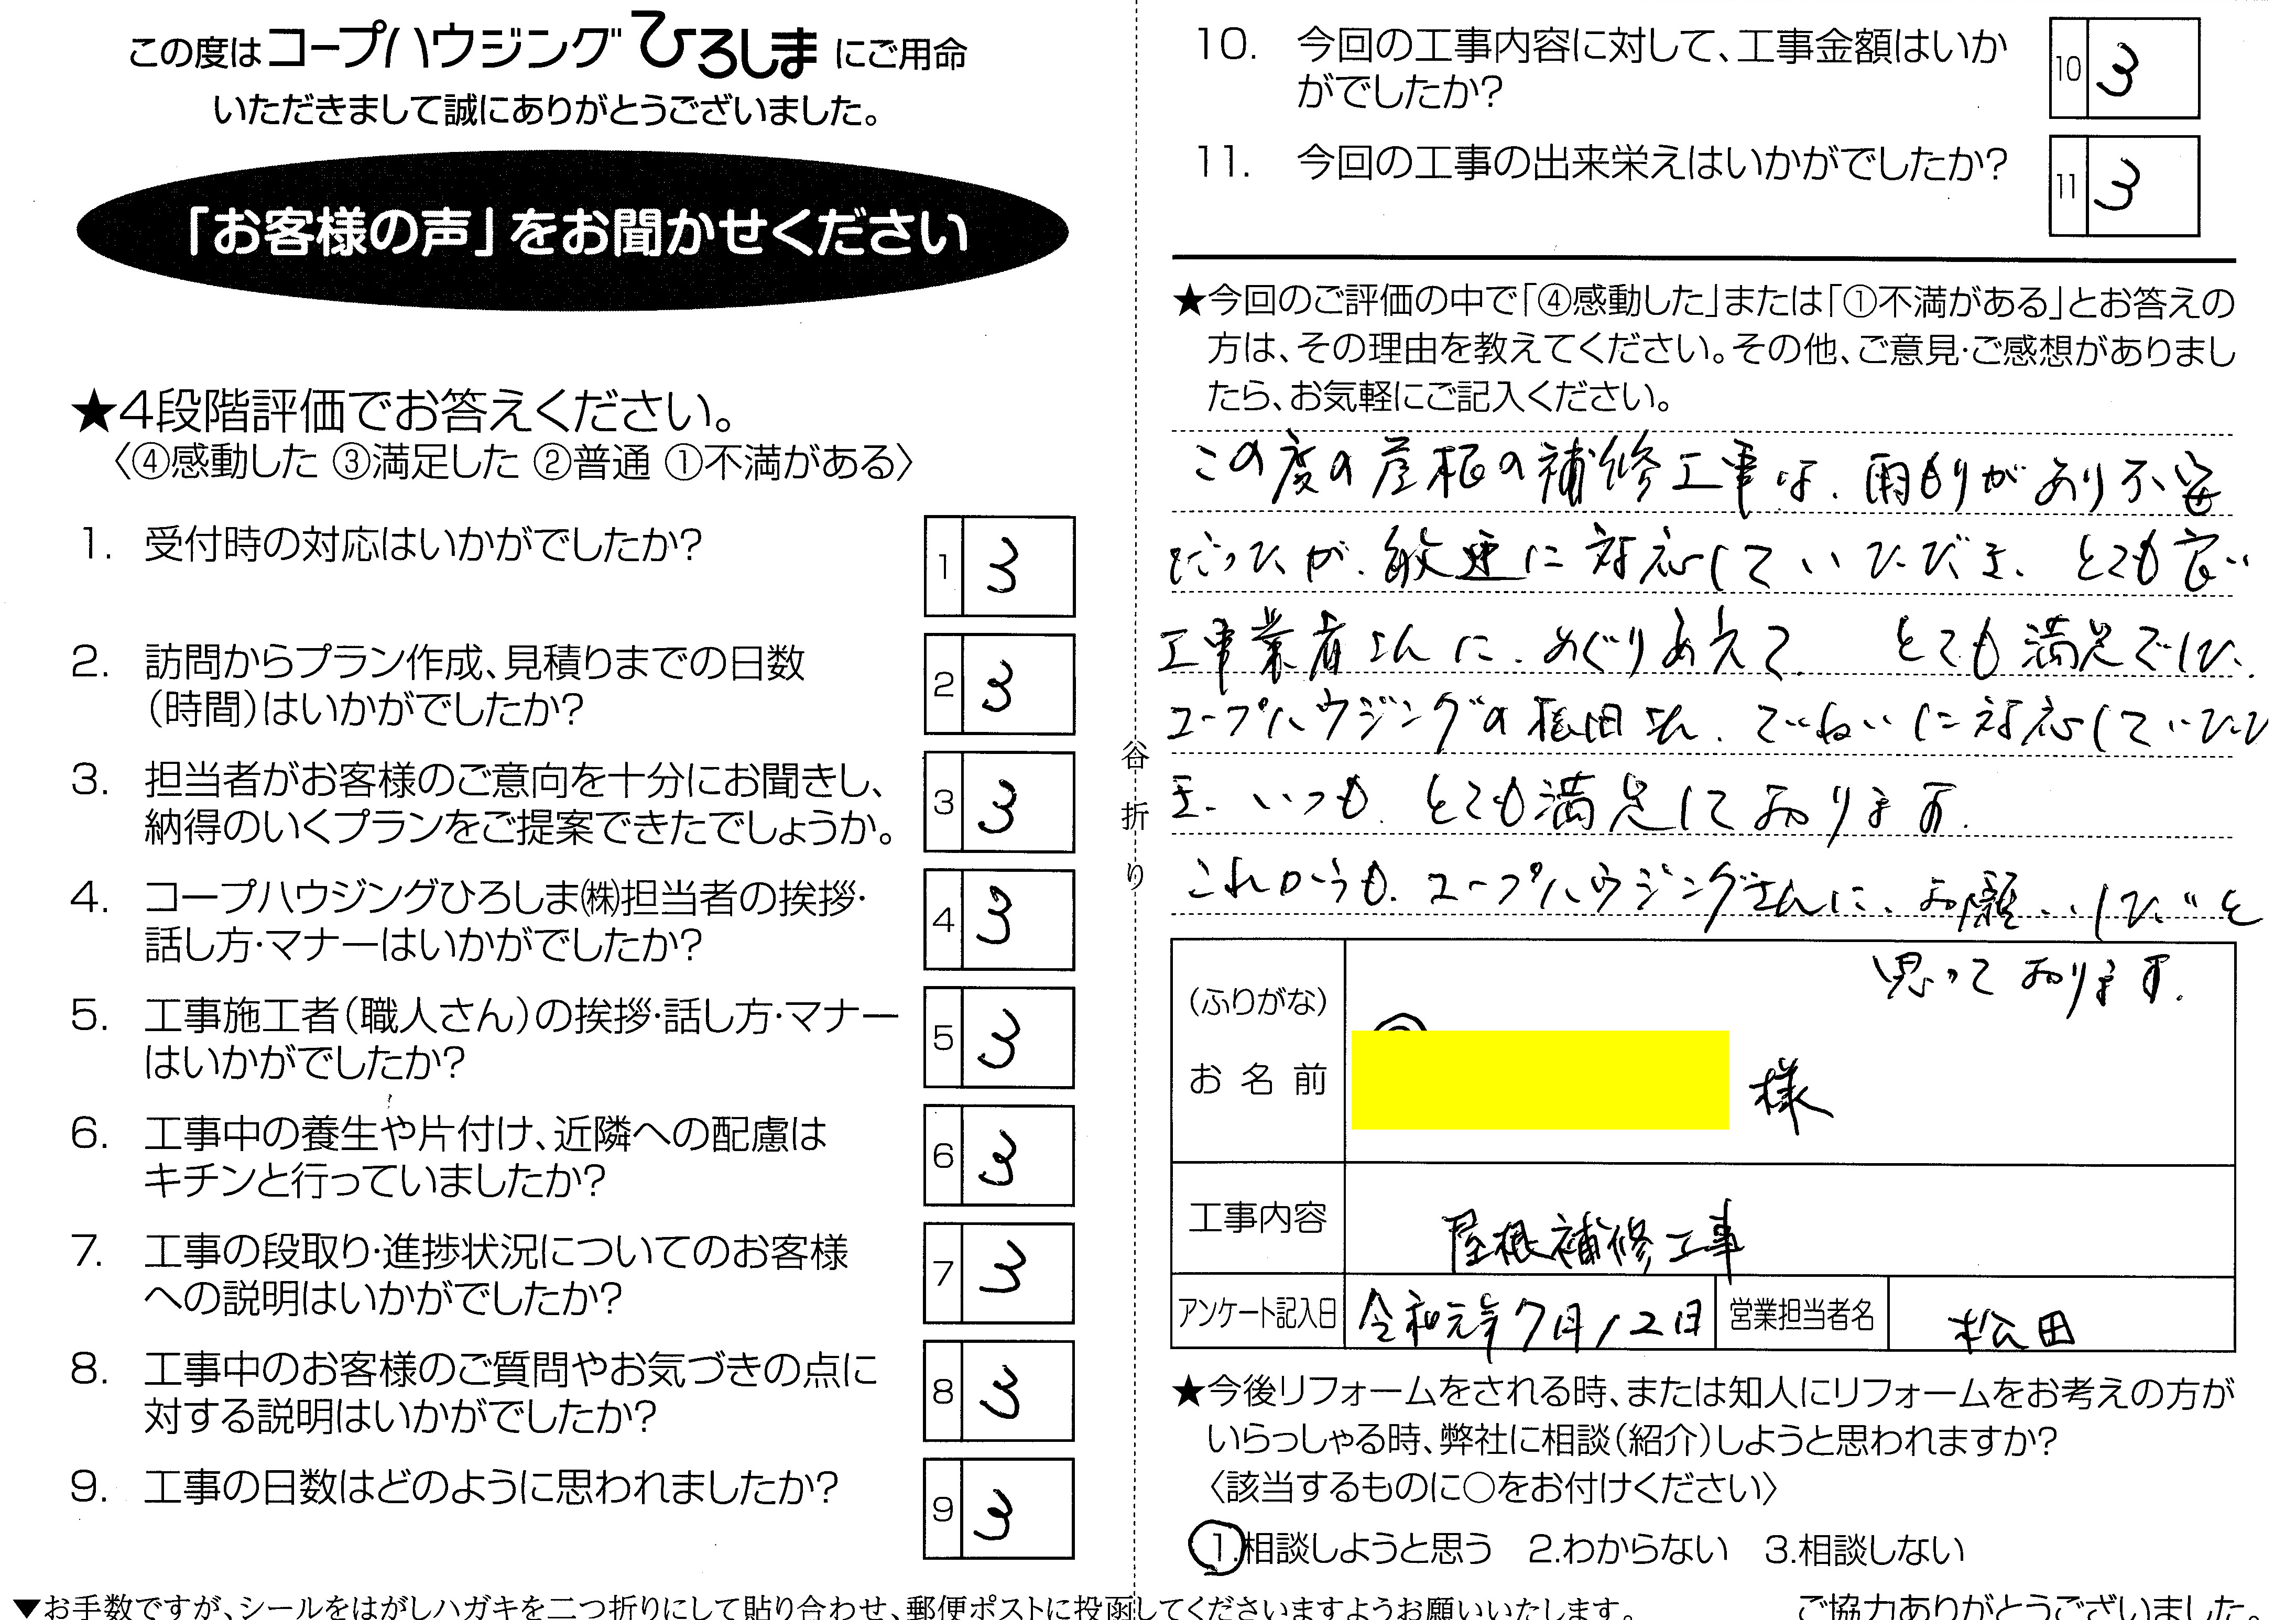 この度はコープハウジングひろしまにご用命
いただきまして誠にありがとうございました。
「お客様の声」をお聞かせください
★4段階評価でお答えください。
〈④感動した ③満足した ②普通 ①不満がある〉
1. 受付時の対応はいかがでしたか? 1 3
2. 訪問からプラン作成、見積りまでの日数
（時間）はいかがでしたか? 2 3
3. 担当者がお客様のご意向を十分にお聞きし、
納得のいくプランをご提案できたでしょうか。 3 3
4. コープハウジングひろしま㈱担当者の挨拶・
話し方・マナーはいかがでしたか? 4 3
5. 工事施工者（職人さん）の挨拶・話し方・マナー
はいかがでしたか? 5 3
6. 工事中の養生や片付け、近隣への配慮は
キチンと行っていましたか? 6 3
7. 工事の段取り・進捗状況についてのお客様
への説明はいかがでしたか? 7 3
8. 工事中のお客様のご質問やお気づきの点に
対する説明はいかがでしたか? 8 3
9. 工事の日数はどのように思われましたか? 9 3
谷折り
10. 今回の工事内容に対して、工事金額はいか
がでしたか? 10 3
11. 今回の工事の出来栄えはいかがでしたか? 11 3
★今回のご評価の中で「④感動した」または「①不満がある」とお答えの
方は、その理由を教えてください。その他、ご意見・ご感想がありまし
たら、お気軽にご記入ください。
この度の屋根の補修工事は、雨もりがあり不安
だったが、敏速に対応していただき、とても良い
工事業者さんに、めぐりあえて、とても満足でした。
コープハウジングの松田さん、ていねいに対応していただ
き、いつも、とても満足しております。
これからも、コープハウジングさんに、お願いしたいと
思っております。
（ふりがな）
お名前 様
工事内容 屋根補修工事
アンケート記入日 令和元年7月12日 営業担当者名 松田
★今後リフォームをされる時、または知人にリフォームをお考えの方が
いらっしゃる時、弊社に相談（紹介）しようと思われますか?
〈該当するものに○をお付けください〉
1.相談しようと思う 2.わからない 3.相談しない
▼お手数ですが、シールをはがしハガキを二つ折りにして貼り合わせ、郵便ポストに投函してくださいますようお願いいたします。
ご協力ありがとうございました。